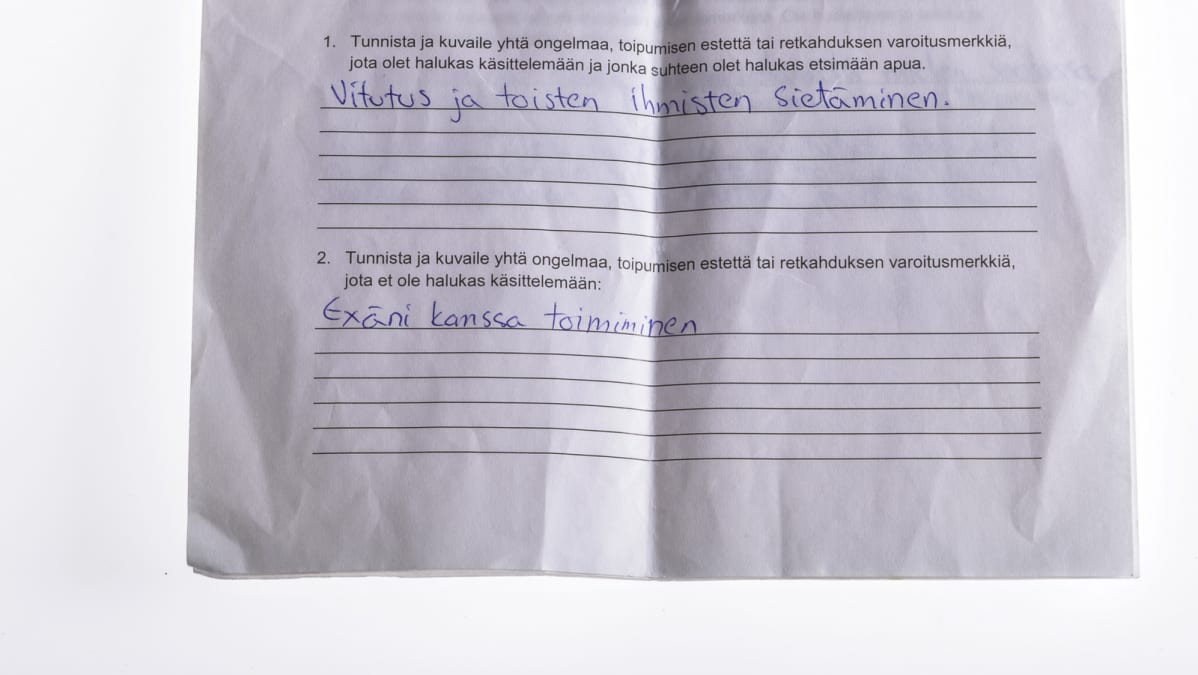 1. Tunnista ja kuvaile yhtä ongelmaa, toipumisen estettä tai retkahduksen varoitusmerkkiä,
jota olet halukas käsittelemään ja jonka suhteen olet halukas etsimään apua.
Vitutus ja toisten ihmisten sietäminen.
2. Tunnista ja kuvaile yhtä ongelmaa, toipumisen estettä tai retkahduksen varoitusmerkkiä,
jota et ole halukas käsittelemään:
Exäni kanssa toimiminen